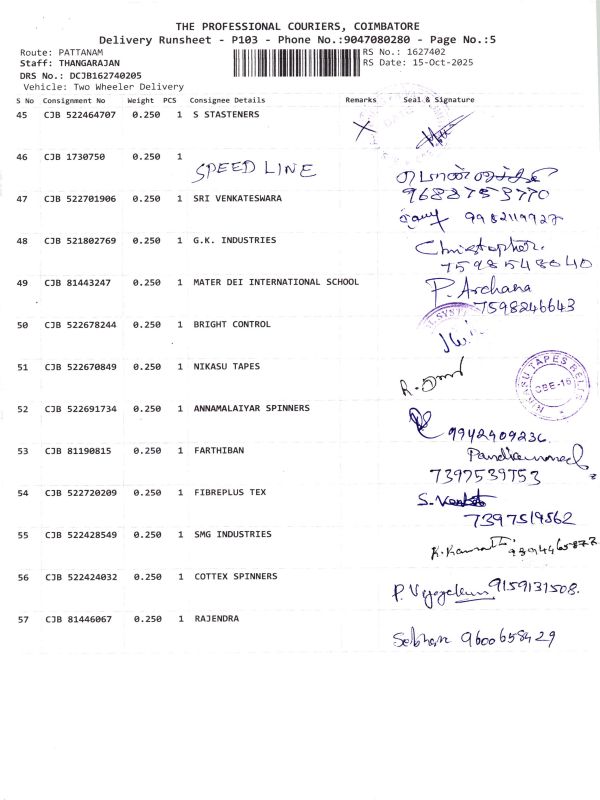 THE PROFESSIONAL COURIERS, COIMBATORE
Delivery Runsheet - P103 - Phone No.:9047080280 - Page No.:5
Route: PATTANAM RS No.: 1627402
Staff: THANGARAJAN RS Date: 15-Oct-2025
DRS No.: DCJB162740205
Vehicle: Two Wheeler Delivery
S No Consignment No Weight PCS Consignee Details Remarks Seal & Signature
45 CJB 522464707 0.250 1 S STASTENERS X
46 CJB 1730750 0.250 1 SPEED LINE
9688753770
47 CJB 522701906 0.250 1 SRI VENKATESWARA
9982119927
48 CJB 521802769 0.250 1 G.K. INDUSTRIES Christopher.
7598548040
49 CJB 81443247 0.250 1 MATER DEI INTERNATIONAL SCHOOL P. Archana
7598246643
50 CJB 522678244 0.250 1 BRIGHT CONTROL
51 CJB 522670849 0.250 1 NIKASU TAPES
NIKASU TAPES
CBE-16
52 CJB 522691734 0.250 1 ANNAMALAIYAR SPINNERS
9942409236
53 CJB 81190815 0.250 1 FARTHIBAN
7397539753
54 CJB 522720209 0.250 1 FIBREPLUS TEX
7397519562
55 CJB 522428549 0.250 1 SMG INDUSTRIES
56 CJB 522424032 0.250 1 COTTEX SPINNERS 9159131508.
57 CJB 81446067 0.250 1 RAJENDRA
9600658429